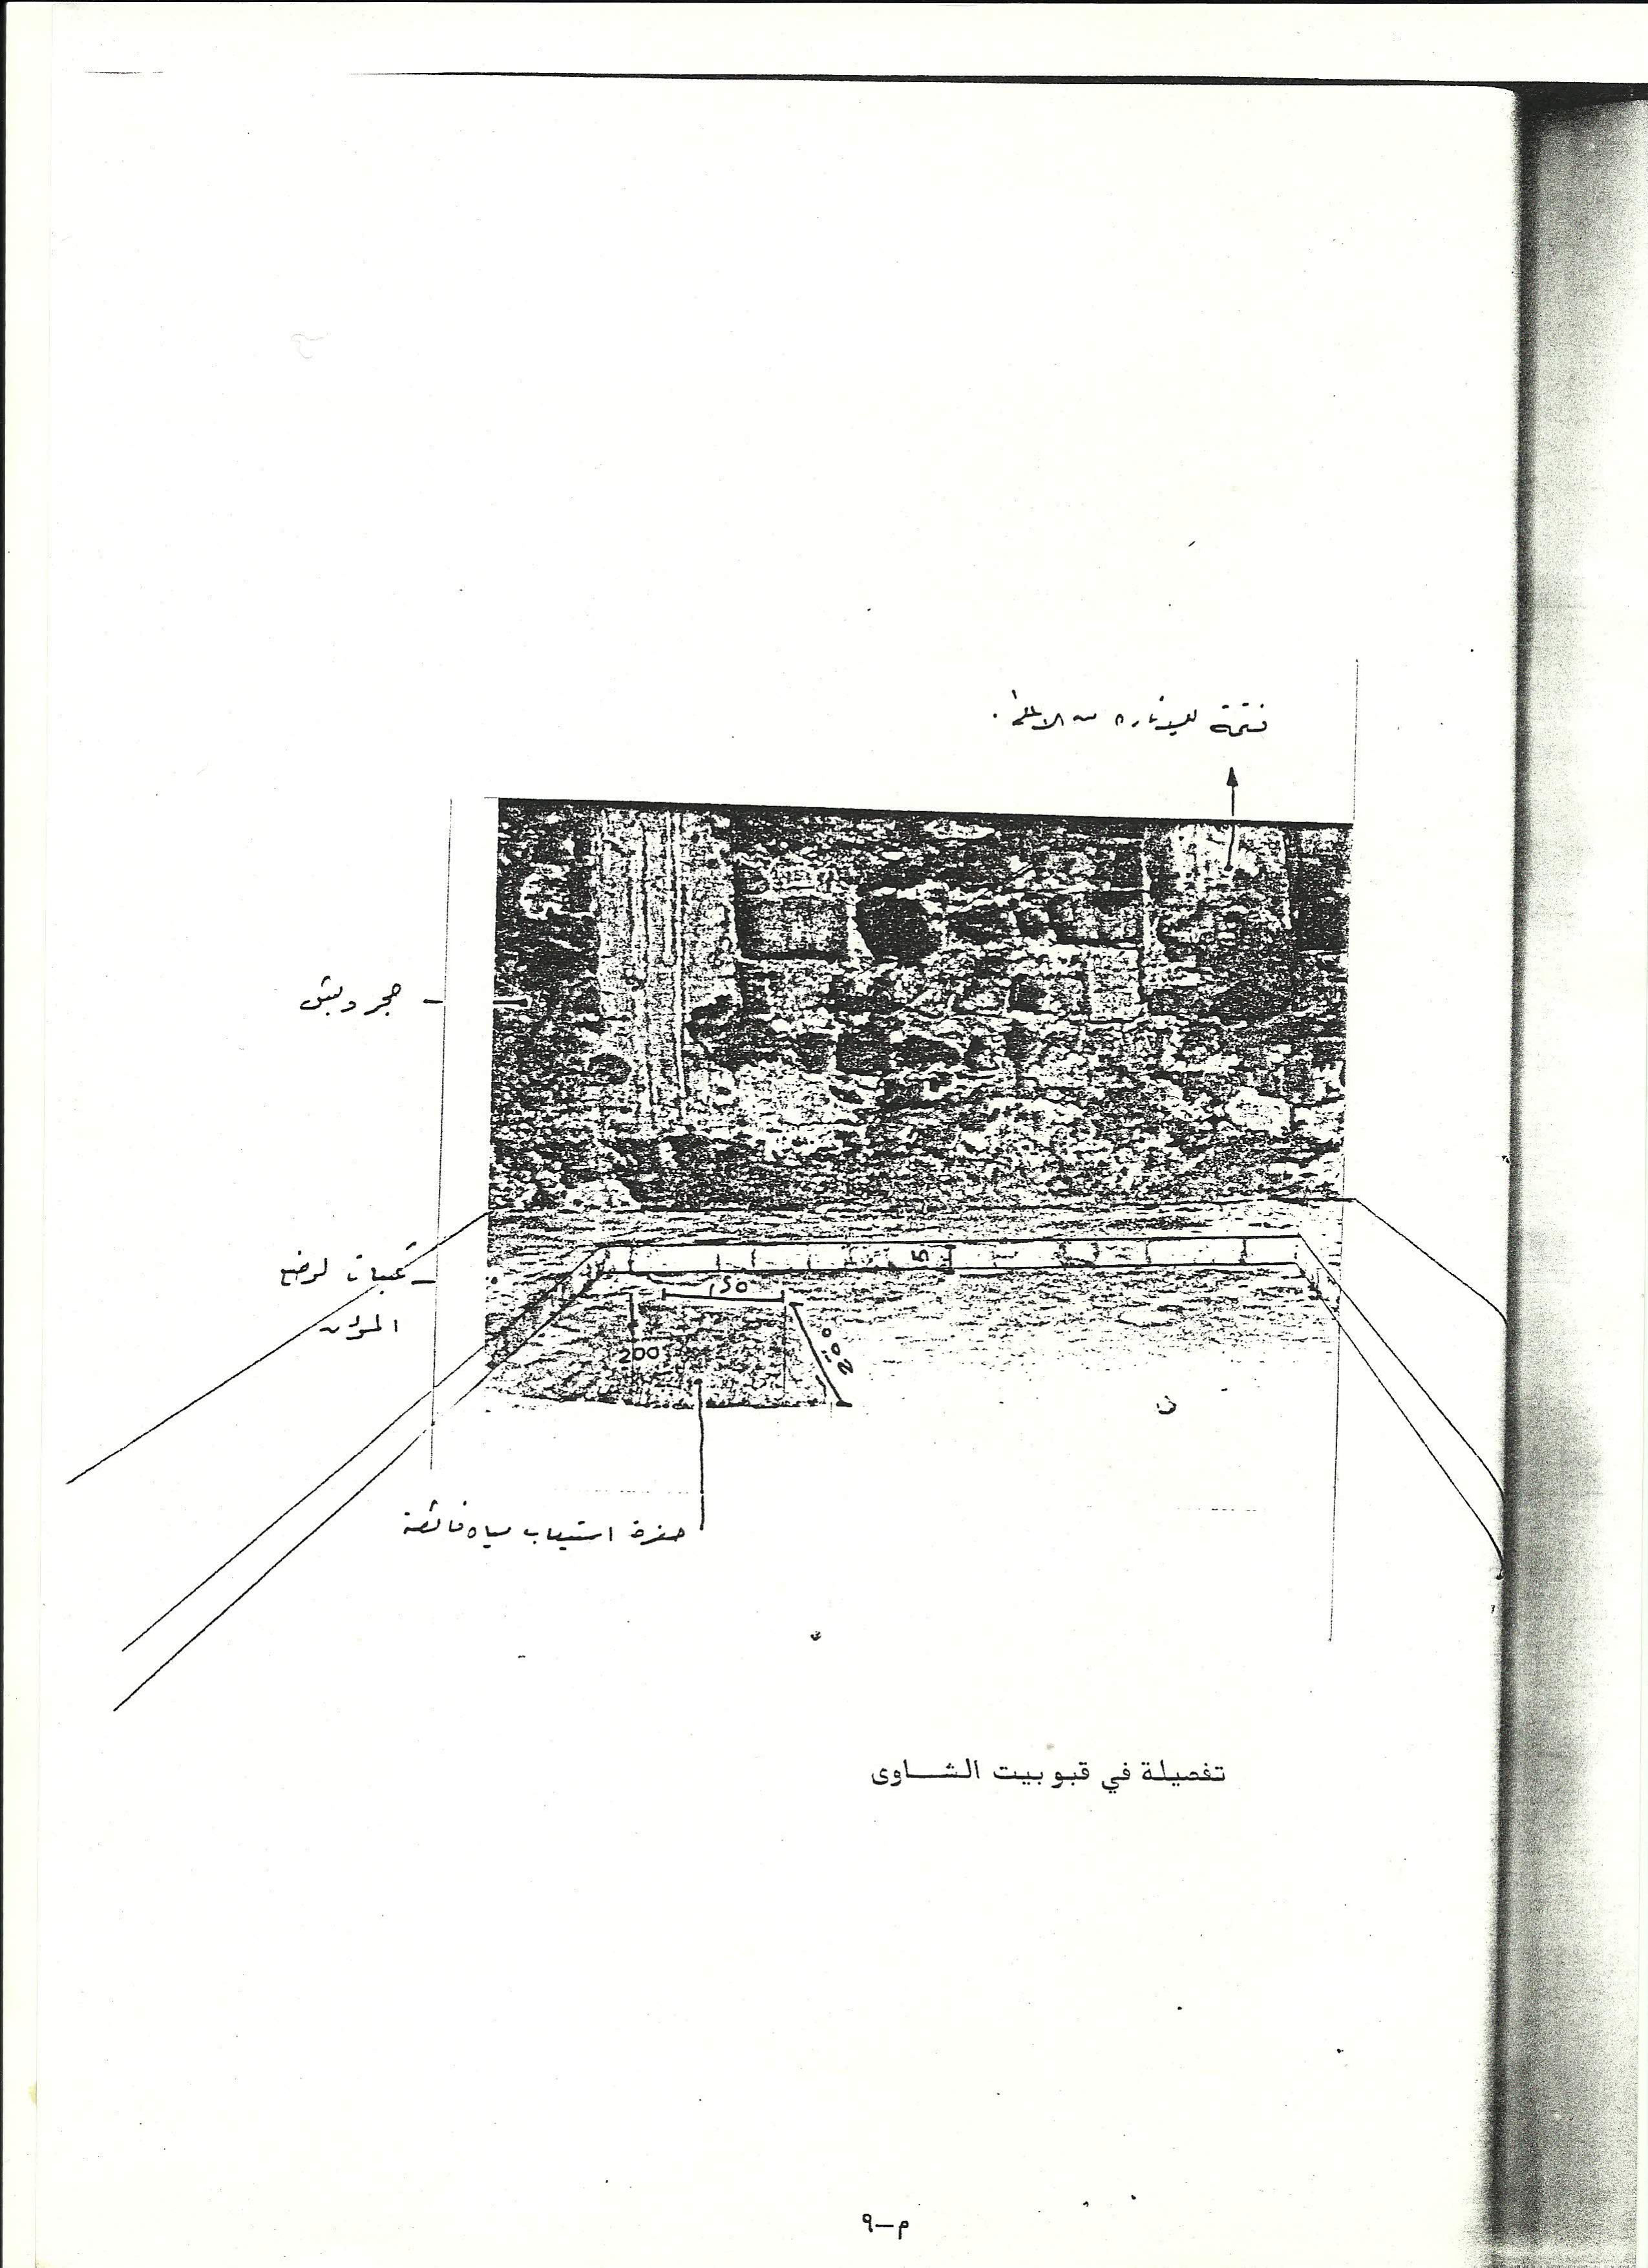 فتحة للإنارة من الاعلى.
حجر دبش
تعبيات لوضع
المؤن
15
150
200
200
حفرة استيعاب مياه فائضة
تفصيلة في قبو بيت الشاوى
م-٩